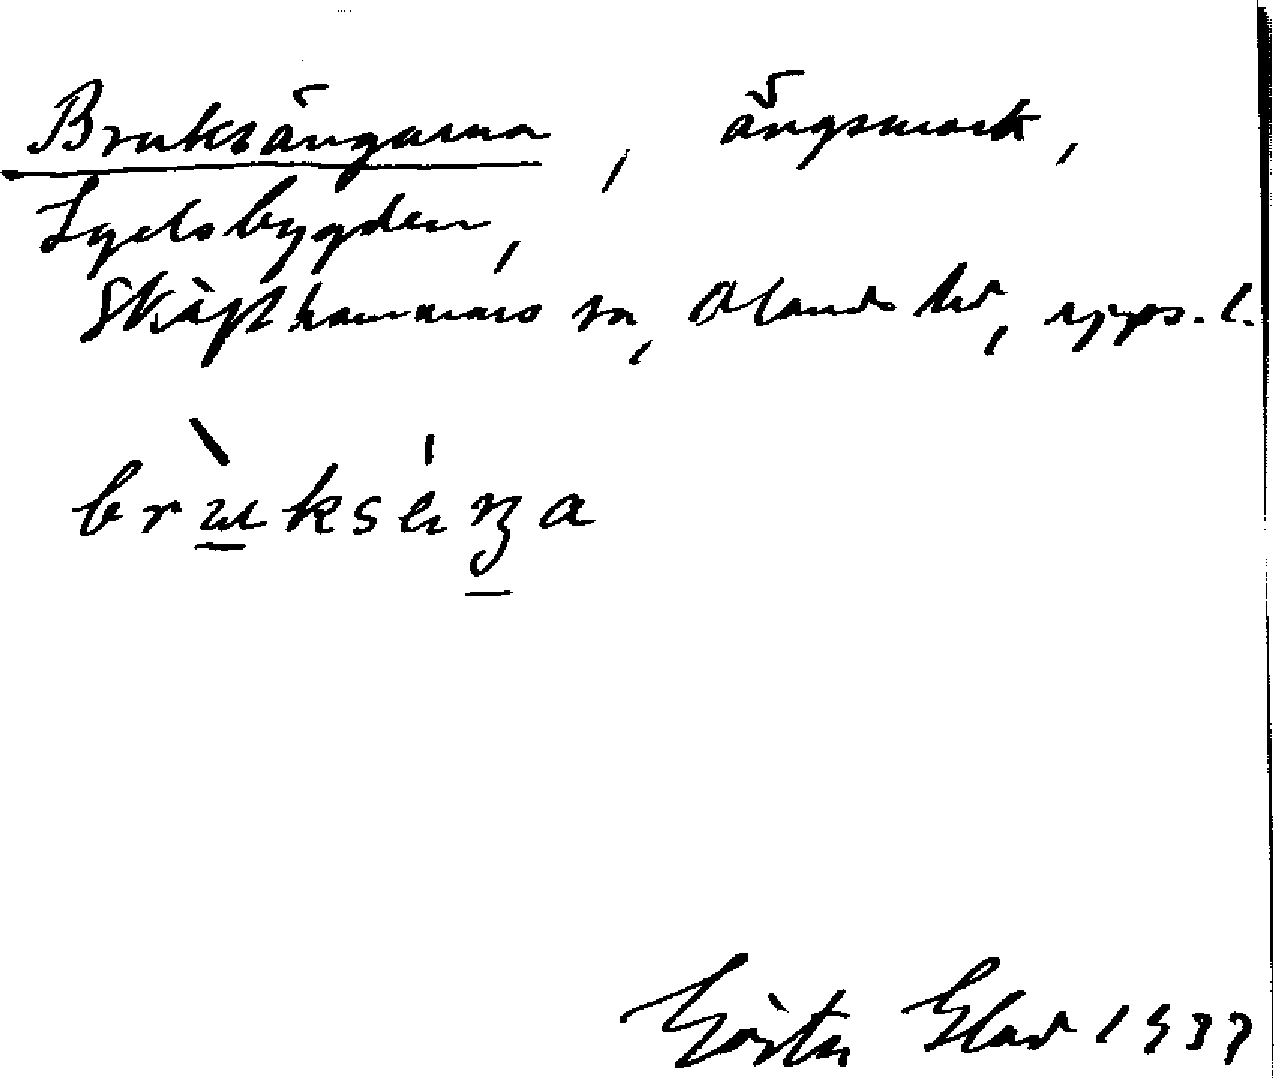 Bruksängarna, ängsmark,
bygden,
Skäfthammars sn, Olands hd, Upps. l.
bruksäŋa
Gösta Glad 1937